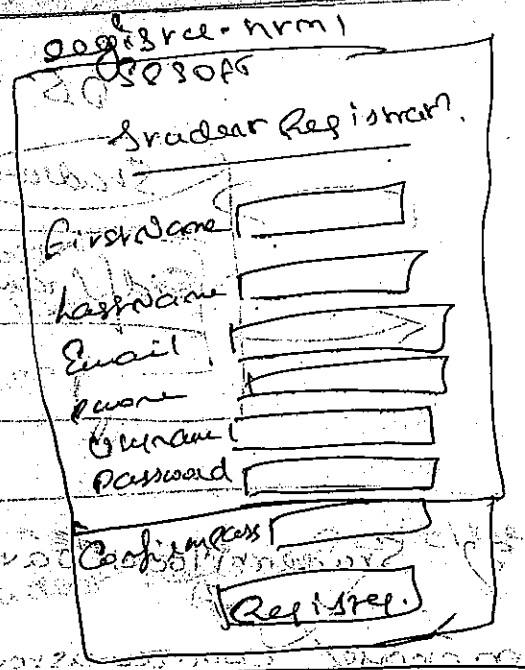 register.html
Student Registration
FirstName
LastName
Email
phone
Username
password
Confirmpass
Register.